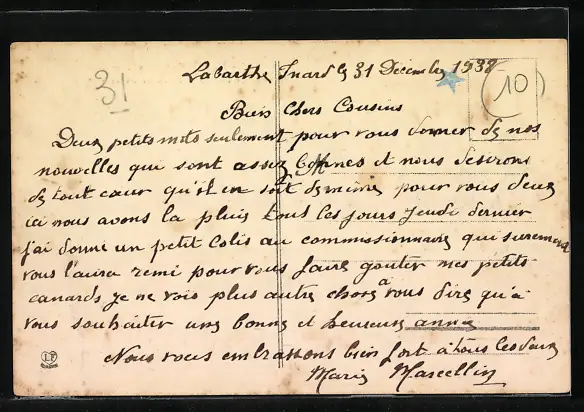 31
Labarthe Inard le 31 Décembre 1937
10
Biens Chers Cousins
Deux petits mots seulement pour vous donner de nos
nouvelles qui sont assez bonnes et nous desirons
de tout cœur qu'il en soit de même pour vous deux
ici nous avons la pluie tous les jours jeudi dernier
j'ai donné un petit colis au commissionnaire qui surement
vous l'aura remi pour vous faire gouter mes petits
canards je ne vois plus autre chose a vous dire qu'à
vous souhaiter une bonne et heureuse année
Nous vous embrassons bien fort à tous les deux
Marie Marcellin